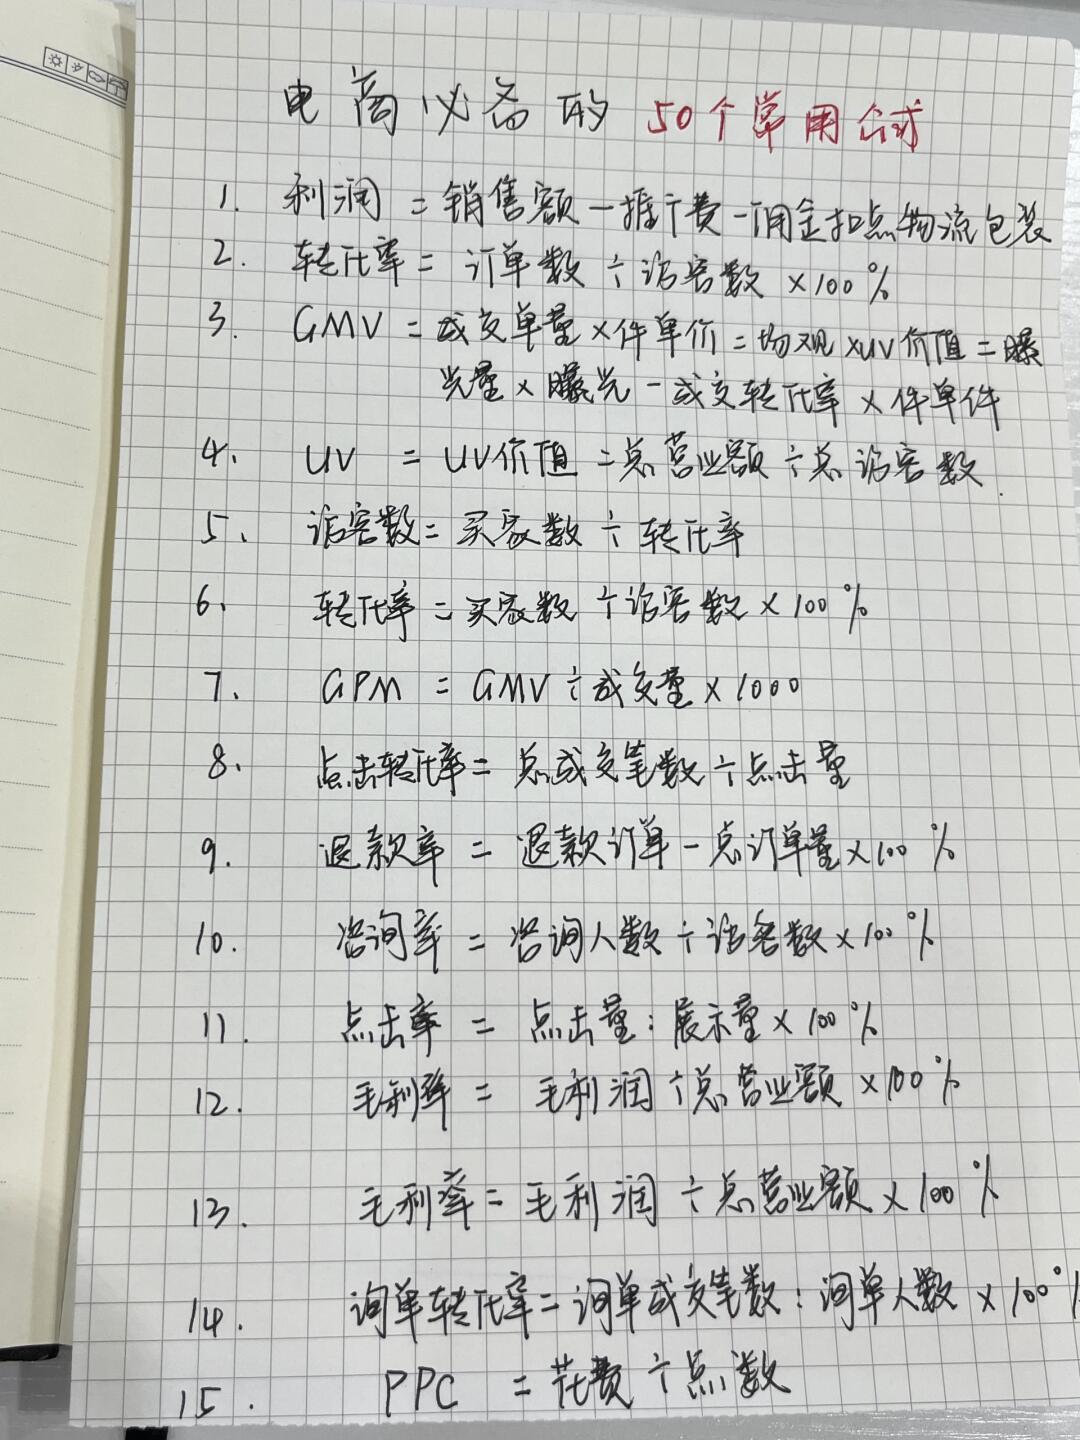 电商必备的 50个常用公式
1. 利润 = 销售额-推广费-佣金扣点物流包装
2. 转化率 = 订单数÷访客数×100%
3. GMV = 成交单量×件单价=场观×UV价值=曝
光量×曝光-成交转化率×件单件
4. UV = UV价值=总营业额÷总访客数
5、访客数=买家数÷转化率
6. 转化率=买家数÷访客数×100%
7. GPM = GMV÷成交量×1000
8. 点击转化率=总成交笔数÷点击量
9. 退款率 = 退款订单-总订单量×100%
10. 咨询率 = 咨询人数÷访客数×100%
11. 点击率 = 点击量:展示量×100%
12. 毛利率 = 毛利润÷总营业额×100%
13. 毛利率=毛利润÷总营业额×100%
14. 询单转化率=询单成交笔数:询单人数×100%
15. PPC = 花费÷点数